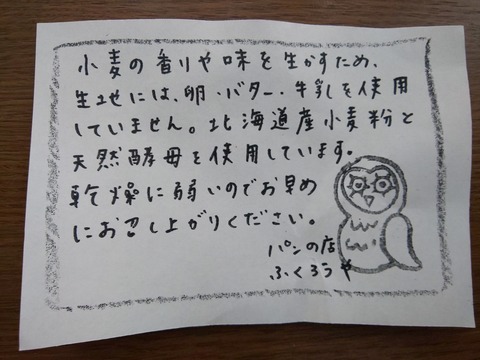 小麦の香りや味を生かすため、
生地には、卵・バター・牛乳を使用
していません。北海道産小麦粉と
天然酵母を使用しています。
乾燥に弱いのでお早め
にお召し上がりください。
パンの店
ふくろうや